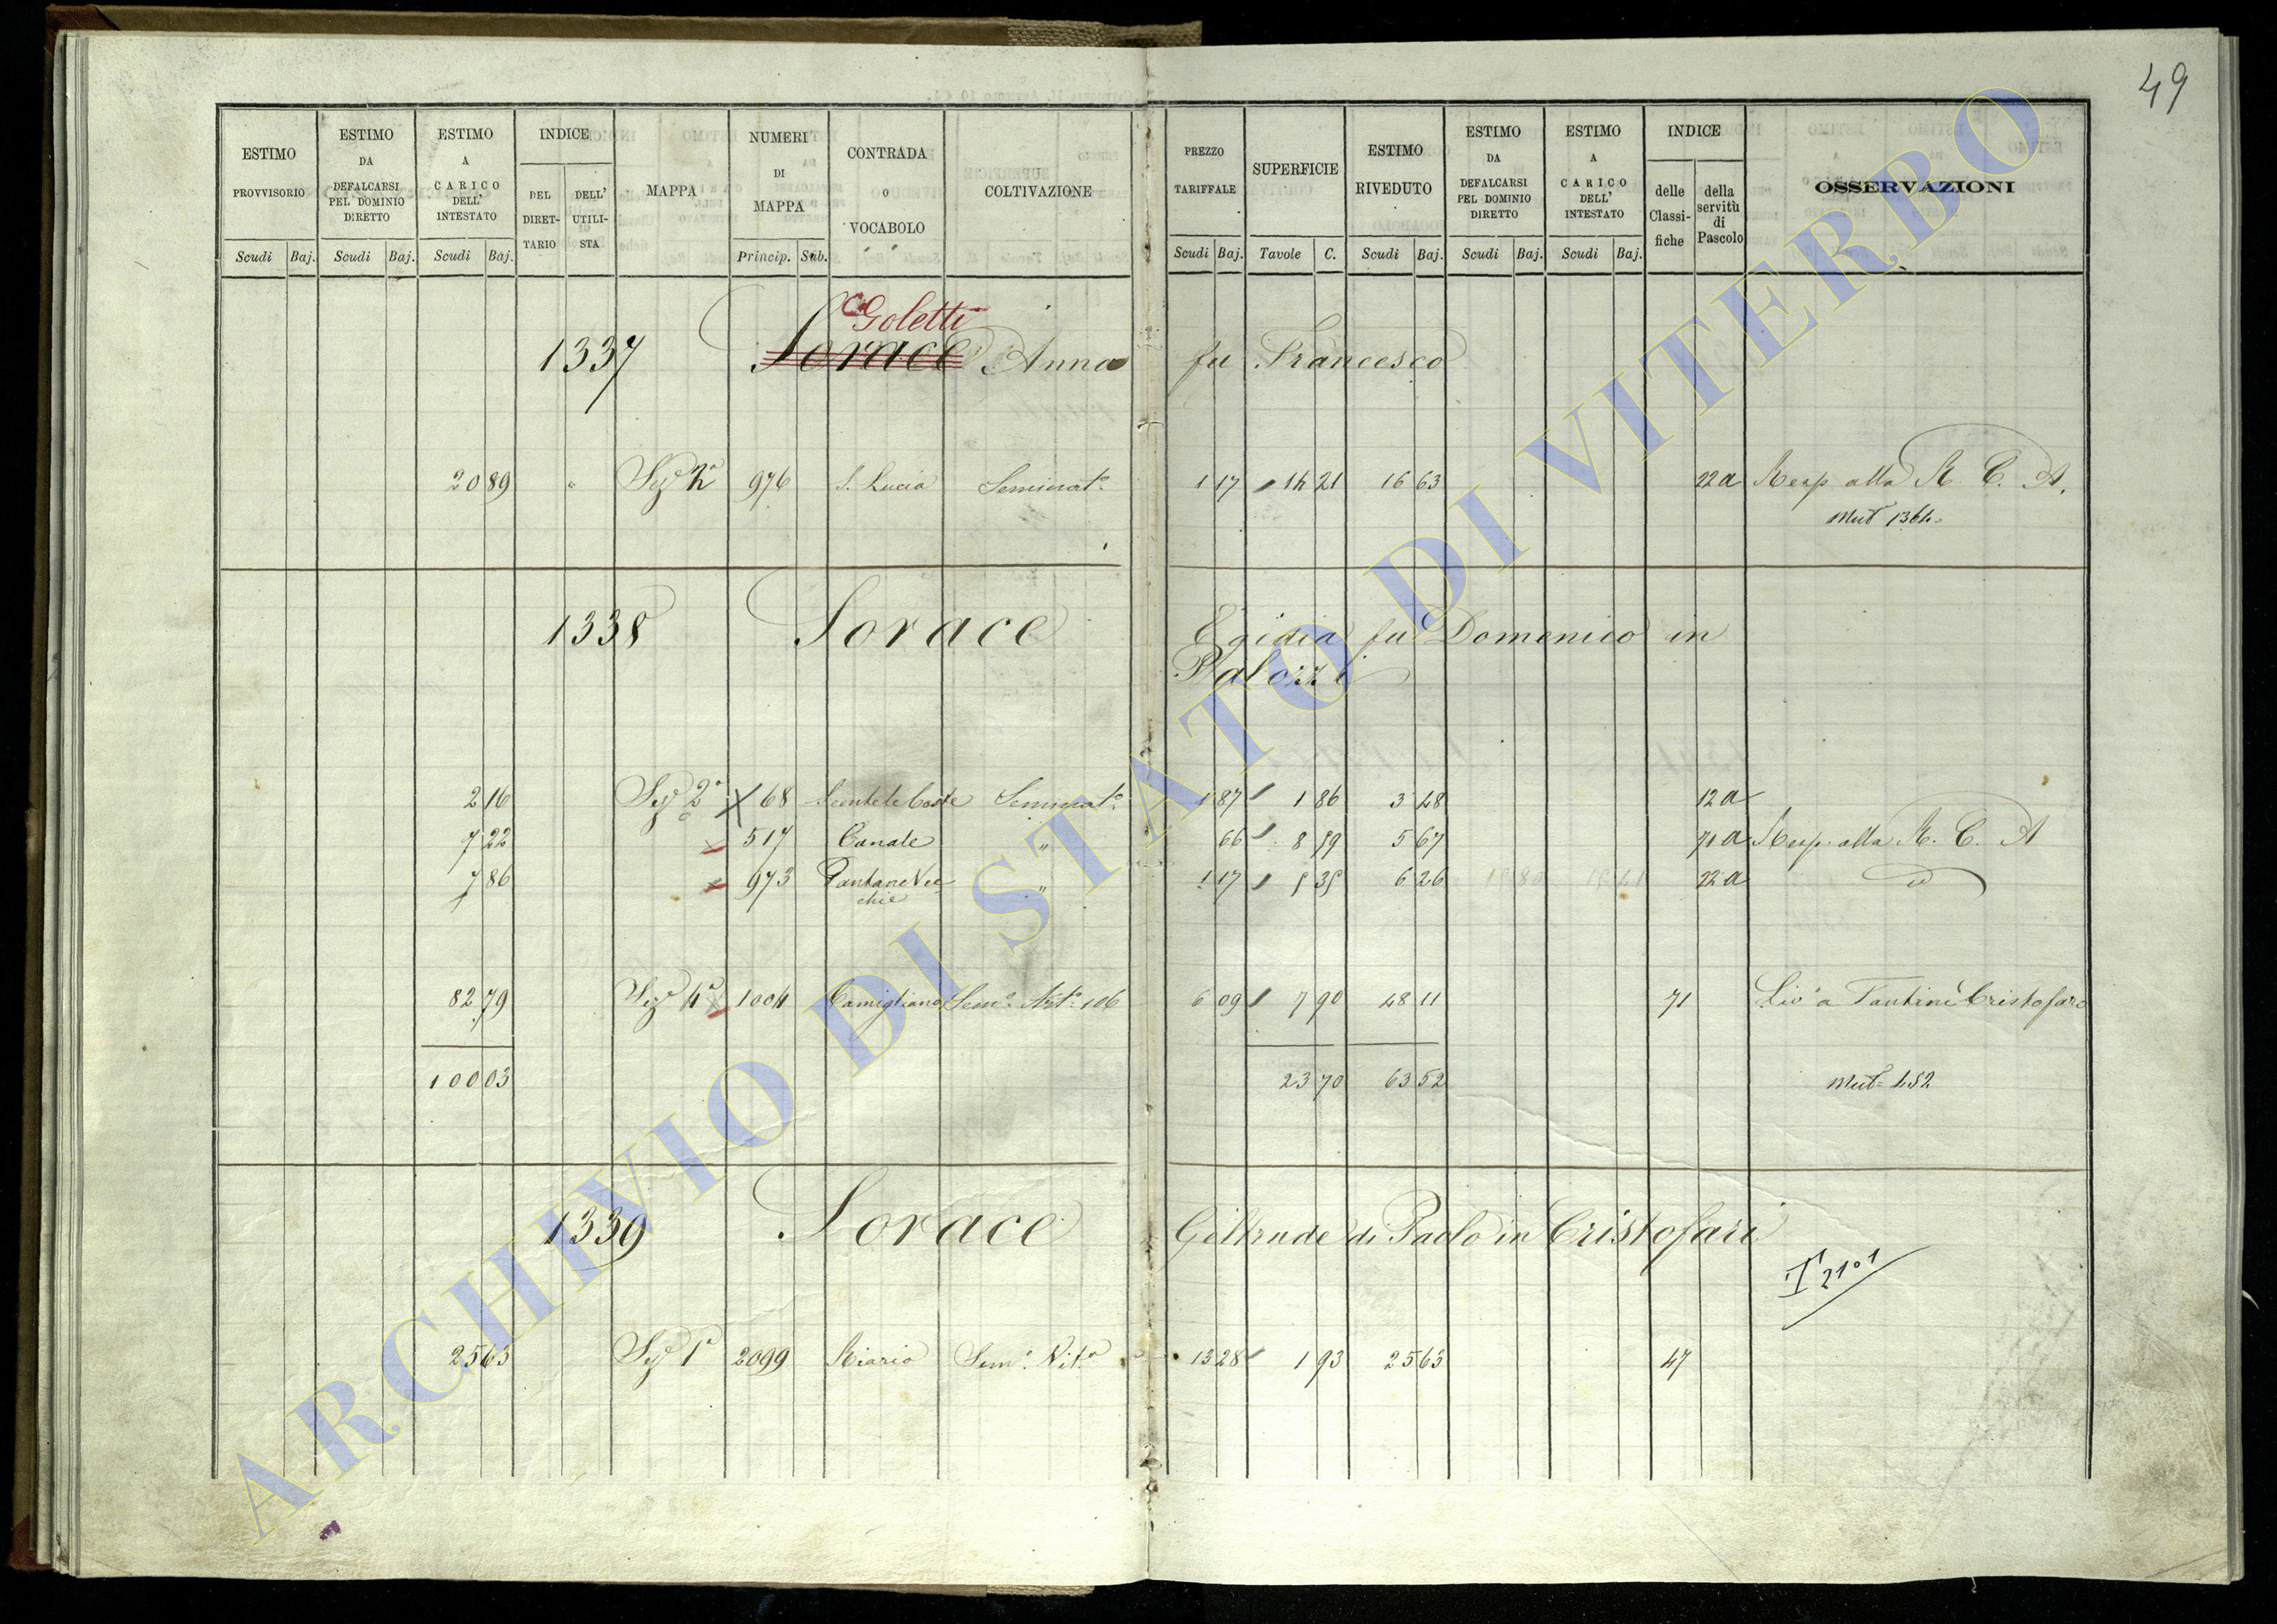 49
ESTIMO PROVVISORIO
ESTIMO DA DEFALCARSI PEL DOMINIO DIRETTO
ESTIMO A CARICO DELL' INTESTATO
INDICE
DEL DIRET- TARIO
DELL' UTILI- STA
MAPPA
NUMERI DI MAPPA
CONTRADA o VOCABOLO
COLTIVAZIONE
PREZZO TARIFFALE
SUPERFICIE
ESTIMO RIVEDUTO
ESTIMO DA DEFALCARSI PEL DOMINIO DIRETTO
ESTIMO A CARICO DELL' INTESTATO
INDICE
delle Classi- fiche
della servitù di Pascolo
OSSERVAZIONI
Scudi Baj. Scudi Baj. Scudi Baj. Princip. Sub. Scudi Baj. Tavole C. Scudi Baj. Scudi Baj. Scudi Baj.
Goletti
1337 Sorace Anna fu Francesco
20 89 " Sez 2a 976 S. Lucia Seminato 1 17 14 21 16 63 22a Resp alla R. C. A.
Mut 1364
1338 Sorace Egidia fu Domenico in
Palozzi
2 16 Sez 2a 68 Seminato 1 87 1 86 3 48 12a
7 22 517 Canale " 66 8 59 5 67 71a Resp. alla R. C. A
7 86 973 Pantane Vec- " 1 17 5 35 6 26 22a id
chie
82 79 Sez 4a 1004 Camigliano Semo Arto 106 6 09 7 90 48 11 71 Livo a Fantini Cristofaro
100 03 23 70 63 52 Mut= 452
1339 Sorace Geltrude di Paolo in Cristofari
25 63 Sez 1a 2099 Riario Semo Vito 13 28 1 93 25 63 47
ARCHIVIO DI STATO DI VITERBO